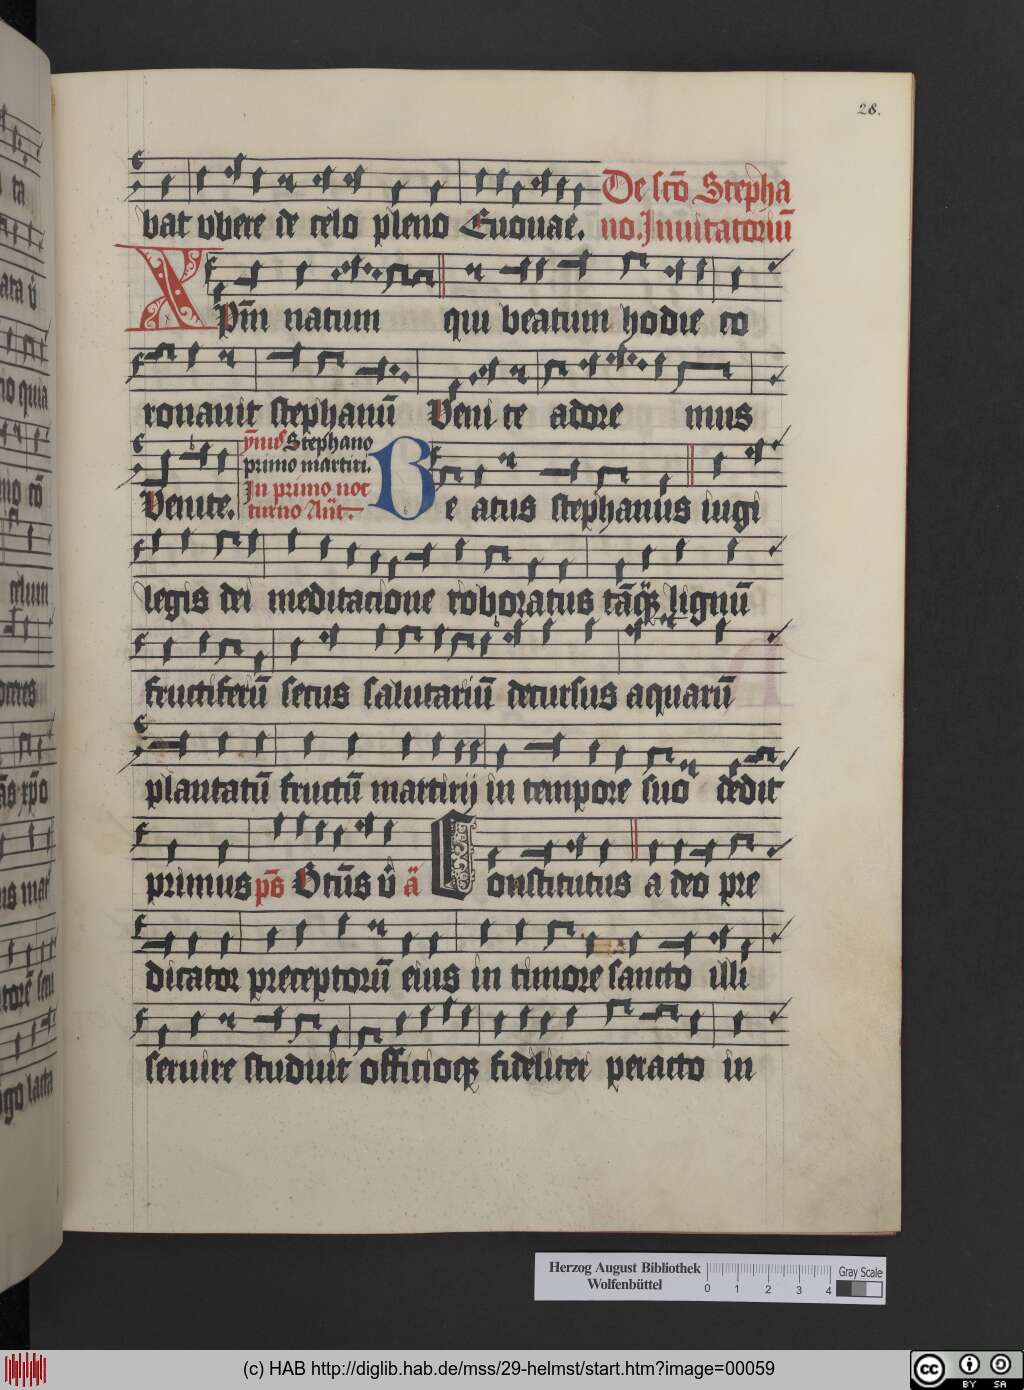 28.
bat vbere de celo pleno Euouae. De sc̄o Stepha
no. Inuitatoriū
Xp̄m natum qui beatum hodie co
ronauit stephanū Veni te adore mus
Venite. ym̄us Stephano
primo martiri.
In primo noc
turno Añt.
Be atus stephanus iugi
legis dei meditacione roboratus tāq̄ꝫ lignū
fructiferū secus salutariū decursus aquarū
plantatū fructū martirij in tempore suo dedit
primus ps̄ Btūs v̓ a᷑ Constitutus a deo pre
dicator preceptorū eius in timore sancto illi
seruire studuit officioqꝫ fideliter peracto in
Herzog August Bibliothek
Wolfenbüttel
0 1 2 3 4
Gray Scale
(c) HAB http://diglib.hab.de/mss/29-helmst/start.htm?image=00059
cc BY SA